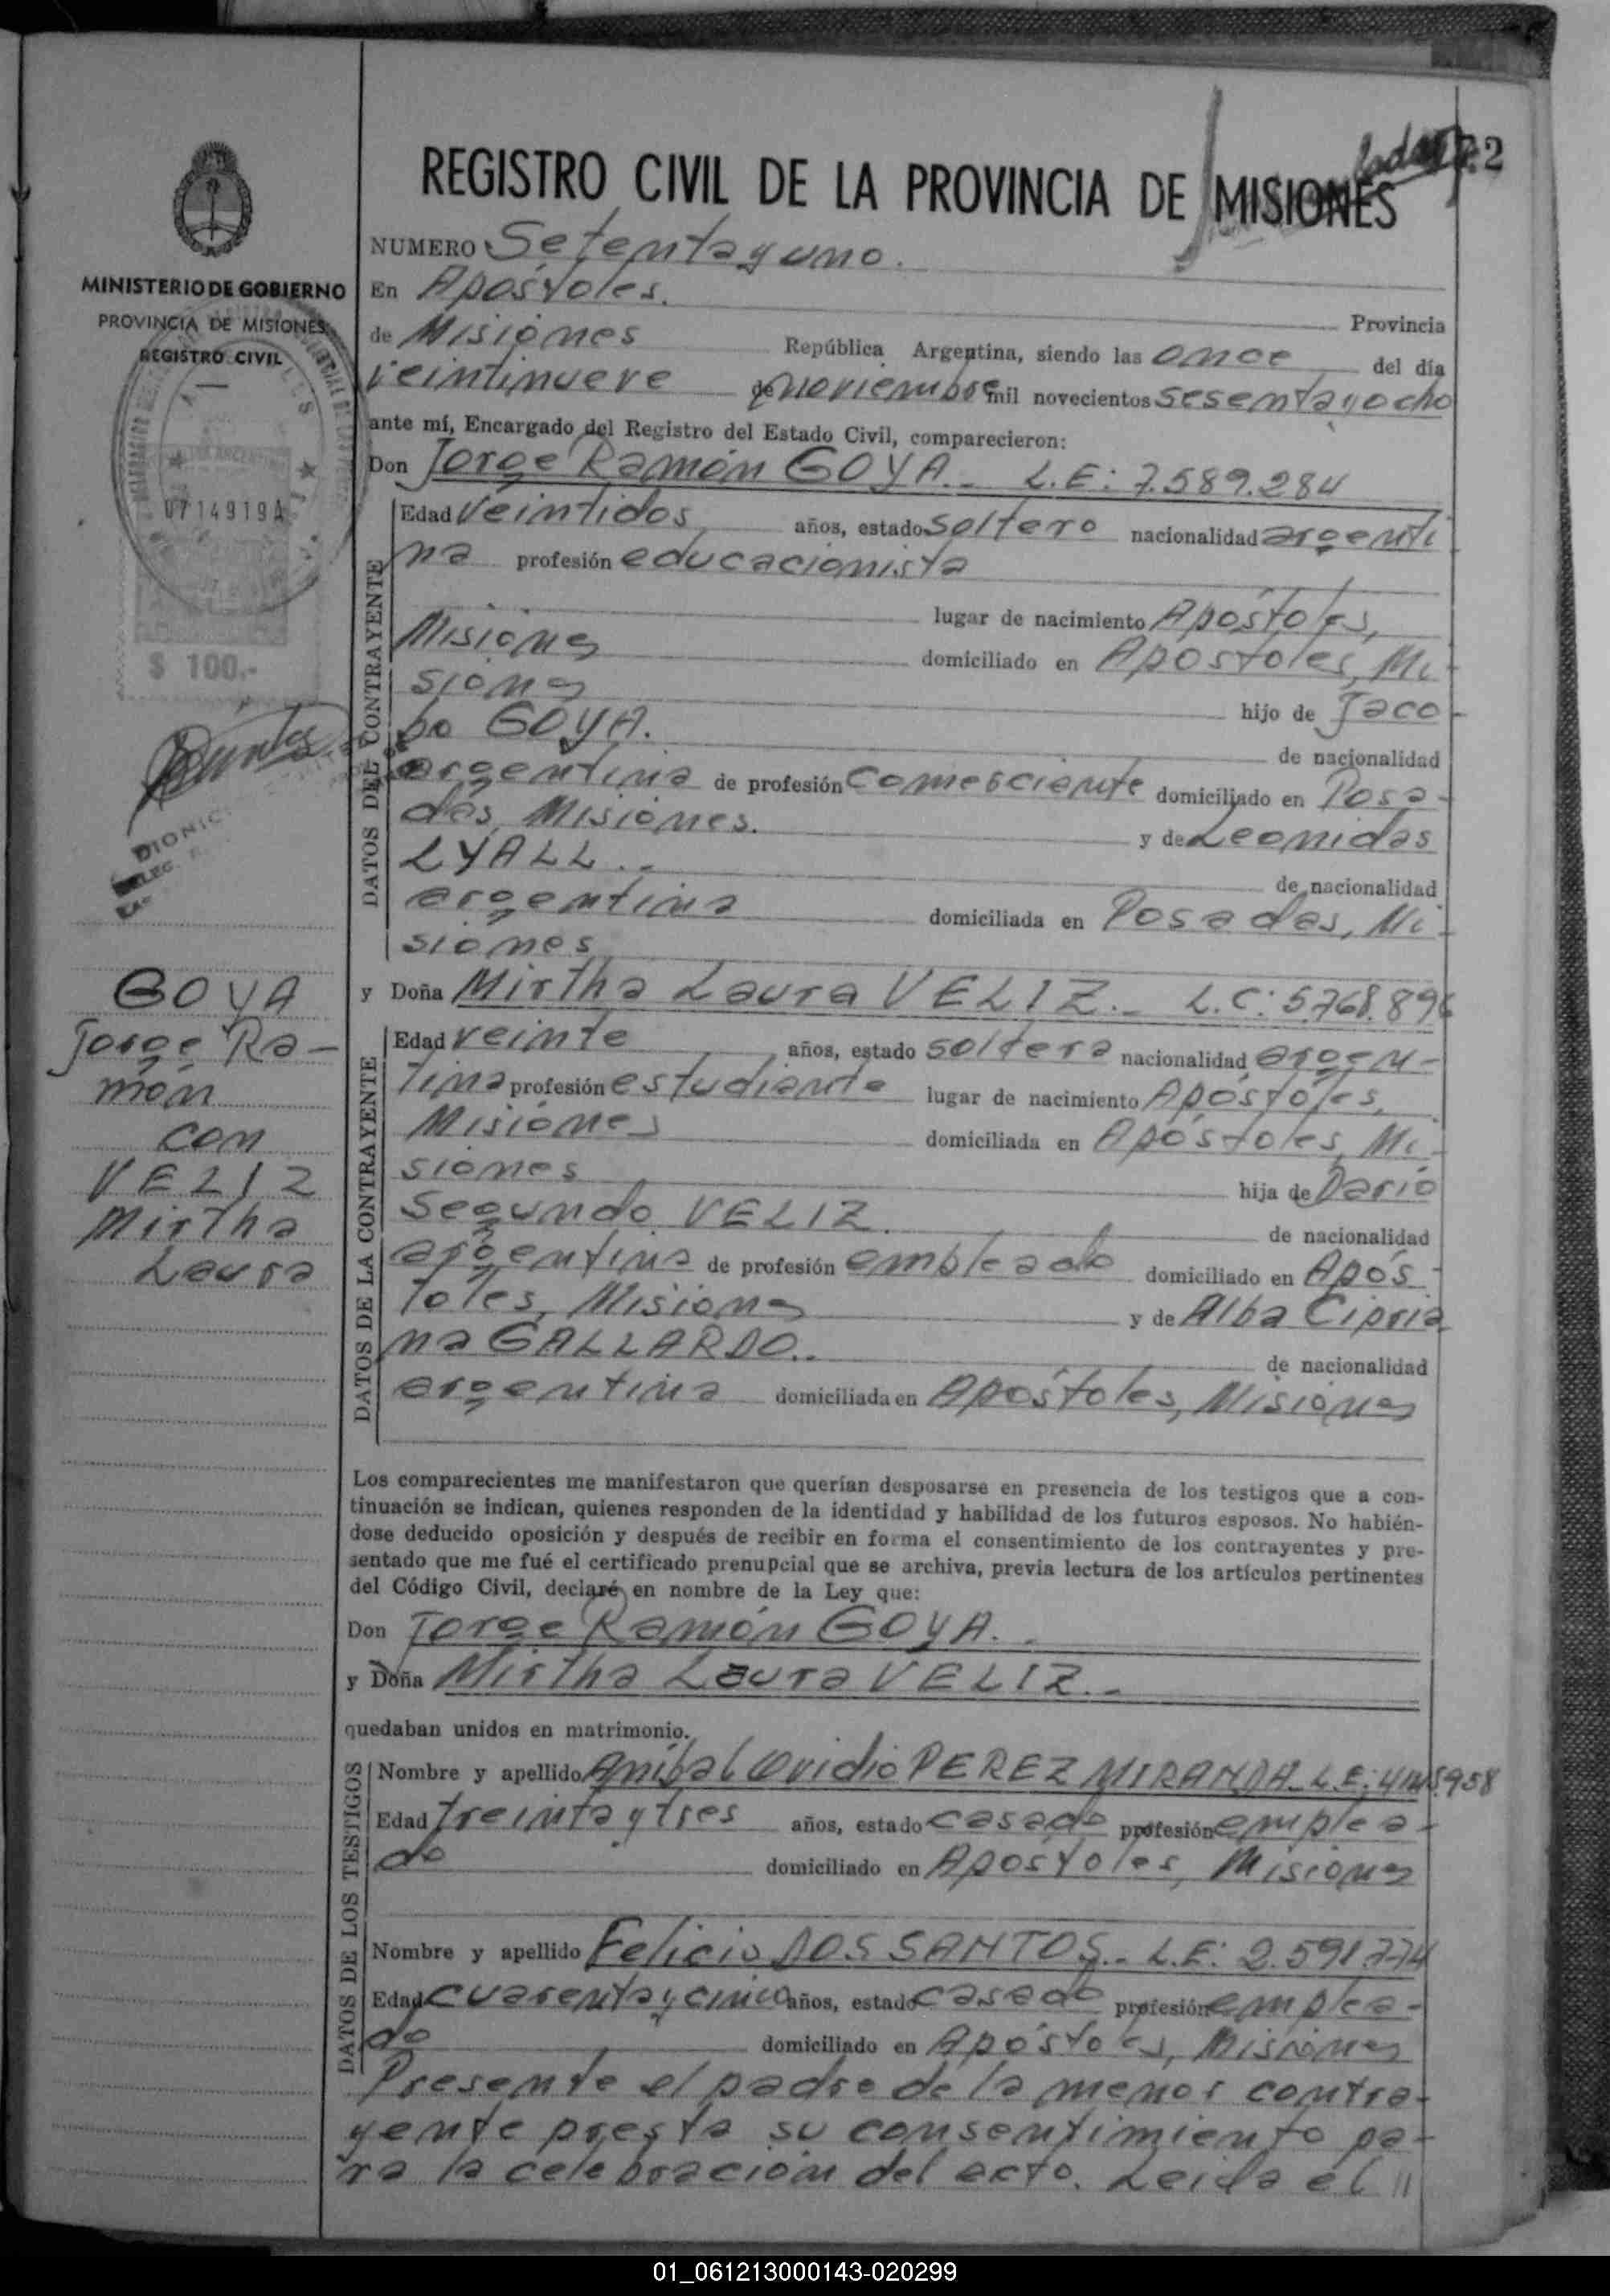 72
REGISTRO CIVIL DE LA PROVINCIA DE MISIONES
NUMERO Setenta y uno.
MINISTERIO DE GOBIERNO
PROVINCIA DE MISIONES
REGISTRO CIVIL
07149194
$ 100.-
En Apóstoles. Provincia
de Misiones República Argentina, siendo las once del día
veintinueve de noviembre mil novecientos sesenta y ocho
ante mí, Encargado del Registro del Estado Civil, comparecieron:
Don Jorge Ramón GOYA.- L.E: 7.589.284
DATOS DEL CONTRAYENTE
Edad veintidos años, estado soltero nacionalidad argenti
na profesión educacionista
lugar de nacimiento Apóstoles,
Misiones domiciliado en Apostoles, Mi-
siones hijo de Jaco-
bo GOYA. de nacionalidad
argentina de profesión comerciante domiciliado en Posa-
das, Misiones. y de Leonidas
LYALL.- de nacionalidad
argentina domiciliada en Posadas, Mi-
siones
y Doña Mirtha Laura VELIZ.- L.C: 5.768.896
DATOS DE LA CONTRAYENTE
Edad veinte años, estado soltera nacionalidad argen-
tina profesión estudiante lugar de nacimiento Apóstoles,
Misiones domiciliada en Apóstoles, Mi-
siones hija de Dario
Segundo VELIZ. de nacionalidad
argentina de profesión empleado domiciliado en Após-
toles, Misiones y de Alba Cipria
na GALLARDO.- de nacionalidad
argentina domiciliada en Apóstoles, Misiones
GOYA
Jorge Ra-
món
con
VELIZ
Mirtha
Laura
Los comparecientes me manifestaron que querían desposarse en presencia de los testigos que a con-
tinuación se indican, quienes responden de la identidad y habilidad de los futuros esposos. No habién-
dose deducido oposición y después de recibir en forma el consentimiento de los contrayentes y pre-
sentado que me fué el certificado prenupcial que se archiva, previa lectura de los artículos pertinentes
del Código Civil, declaré en nombre de la Ley que:
Don Jorge Ramón GOYA.-
y Doña Mirtha Laura VELIZ.-
quedaban unidos en matrimonio.
DATOS DE LOS TESTIGOS
Nombre y apellido Anibal Ovidio PEREZ MIRANDA.- L.E:
Edad treinta y tres años, estado casado profesión emplea-
do domiciliado en Apostoles, Misiones
Nombre y apellido Felicio DOS SANTOS.- L.E: 2.591.774
Edad cuarenta y cinco años, estado casado profesión emplea-
do domiciliado en Apóstoles, Misiones
Presente el padre de la menor contra-
yente presta su consentimiento pa-
ra la celebración del acto. Leida el //
01_061213000143-020299